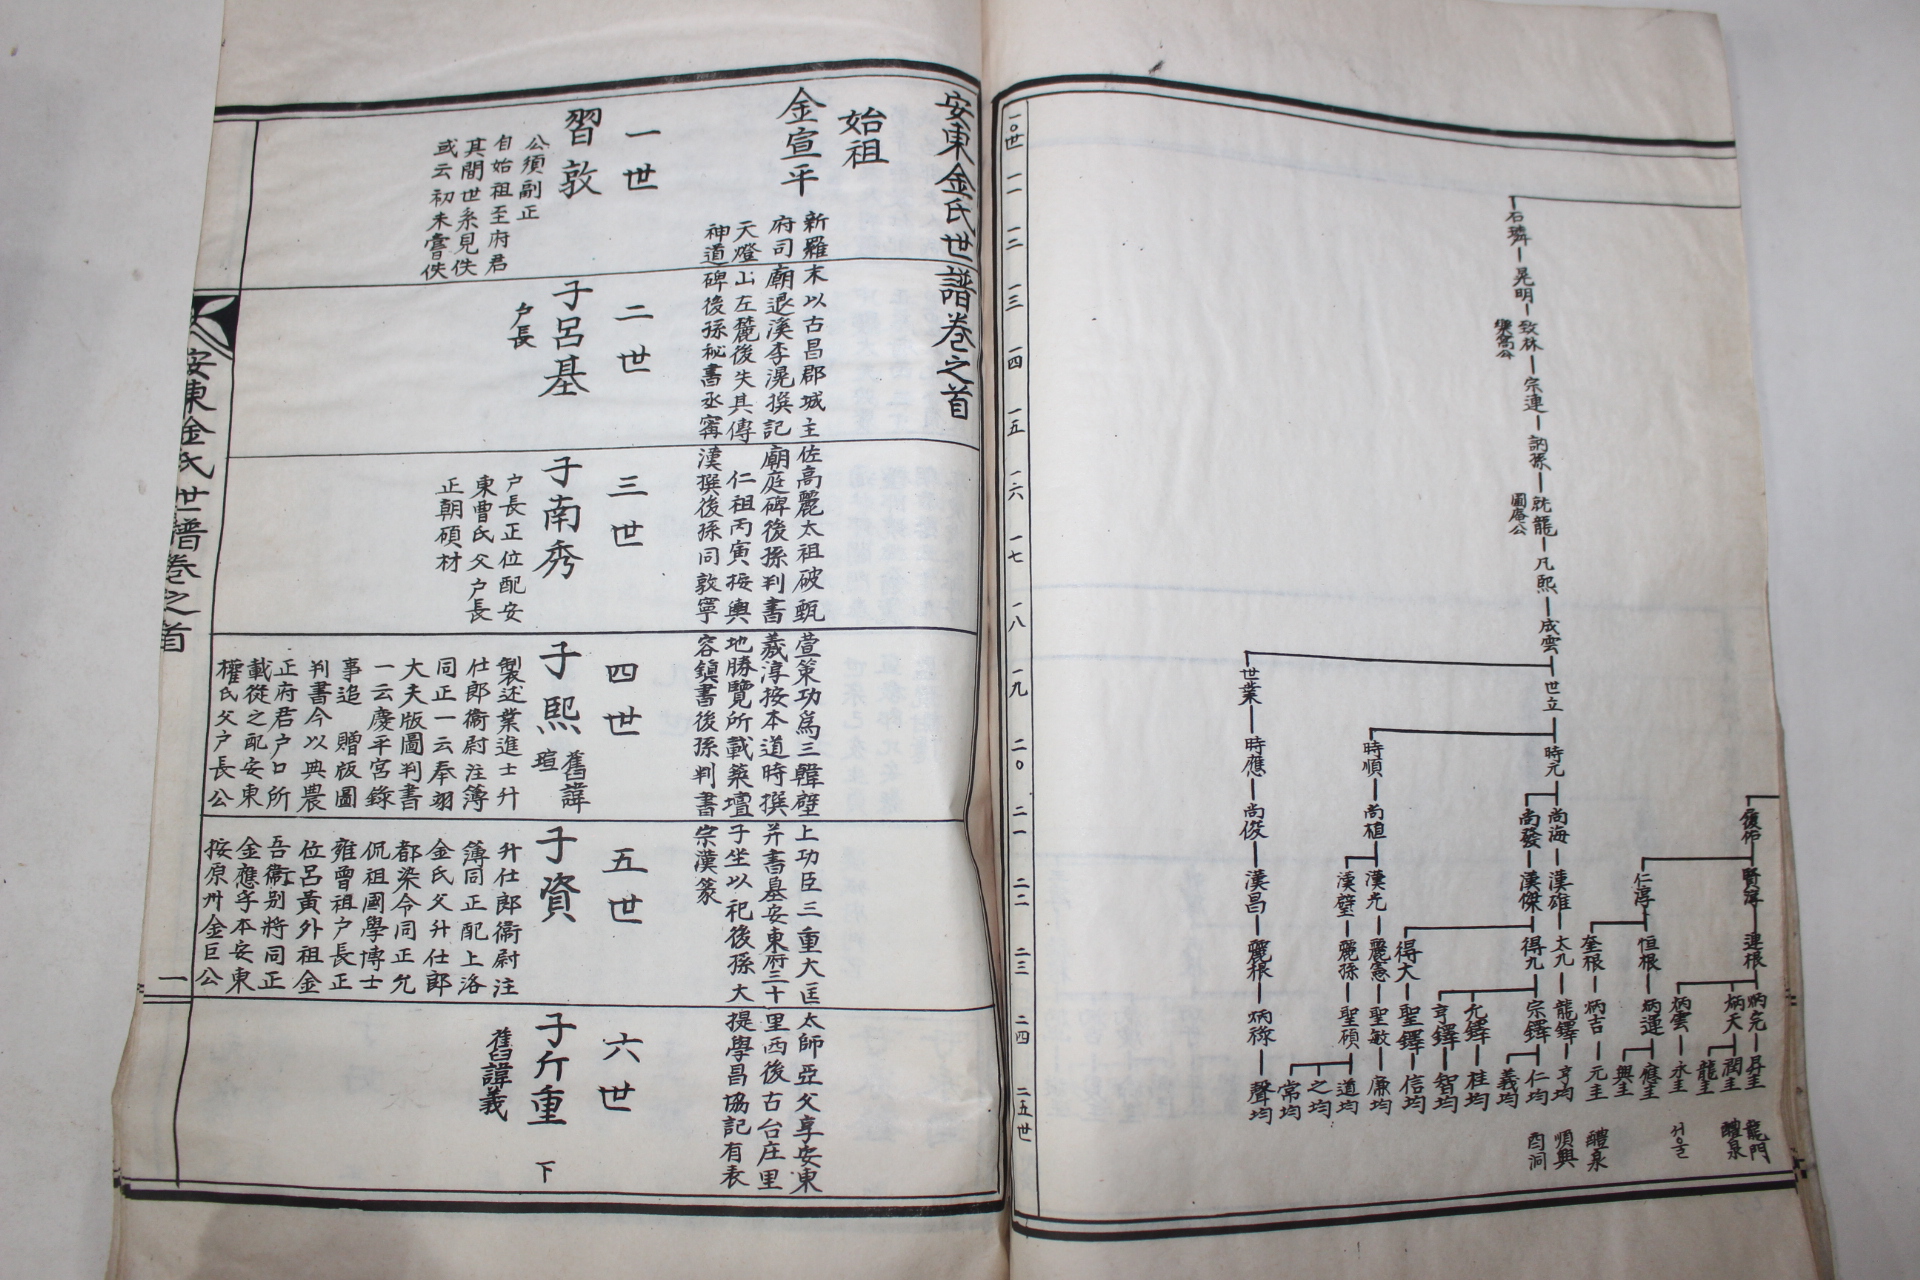 一〇世
一一
一二
一三
一四
一五
一六
一七
一八
一九
二〇
二一
二二
二三
二四
二五世
石璘
晃明
致林
樂窩公
宗連
訥孫
旕龍
圖庵公
凡熙
成雲
世立
世業
時元
時順
時應
尚海
尚發
尚植
尚俊
復佑
賢淳
仁淳
漢雄
漢傑
漢光
漢璧
漢昌
進根
恒根
奎根
大九
得九
得大
麗憲
麗孫
麗根
炳允
炳天
炳雲
炳運
炳吉
龍鐸
宗鐸
允鐸
亨鐸
聖鐸
聖敏
聖碩
炳祿
昇圭
潤圭
龍圭
永圭
應圭
興圭
元圭
亨均
仁均
義均
桂均
智均
信均
廉均
道均
之均
常均
聲均
龍門
醴泉
서울
醴泉
順興
酉洞
安東金氏世譜卷之首
始祖
金宣平
新羅末以古昌郡城主佐高麗太祖破甄萱策功爲三韓壁上功臣三重大匡太師亞父享安東
府司廟退溪李滉撰記廟庭碑後孫判書羲淳按本道時撰并書墓安東府三十里西後古台庄里
天燈山左麓後失其傳仁祖丙寅按輿地勝覽所載築壇子坐以祀後孫大提學昌協記有表
神道碑後孫秘書丞寗漢撰後孫同敦寧容鎮書後孫判書宗漢篆
一世
習敦
公須副正
自始祖至府君
其間世系見佚
或云初未嘗佚
二世
子呂基
户長
三世
子南秀
户長正位配安
東曺氏父户長
正朝碩材
四世
子熙
舊諱
瑄
製述業進士升
仕郎衞尉注簿
同正一云奉翊
大夫版圖判書
一云慶平宮錄
事追贈版圖
判書今以典農
正府君户口所
載從之配安東
權氏父户長公
五世
子資
升仕郎衞尉注
簿同正配上洛
金氏父升仕郎
都染令同正允
侃祖國學博士
雍曾祖户長正
位呂黃外祖金
吾衞別將同正
金應孚本安東
按原州金巨公
六世
子斤重
舊諱義
下
安東金氏世譜卷之首
一